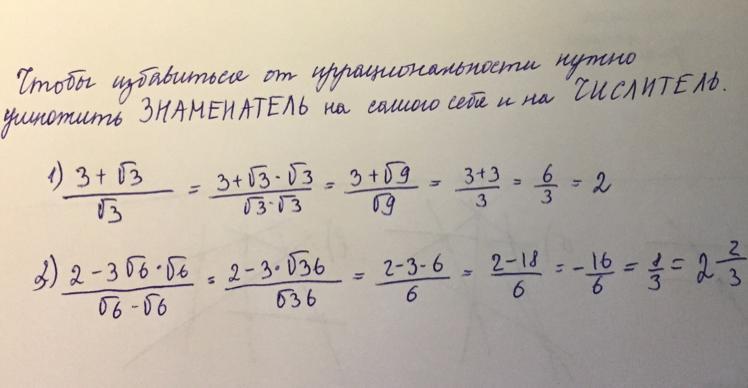 Чтобы избавиться от иррациональности нужно
умножить ЗНАМЕНАТЕЛЬ на самого себя и на ЧИСЛИТЕЛЬ.
1) (3 + √3)/√3 = (3 + √3 · √3)/(√3 · √3) = (3 + √9)/√9 = (3+3)/3 = 6/3 = 2
2) (2 - 3√6 · √6)/(√6 - √6) = (2 - 3 · √36)/√36 = (2 - 3 - 6)/6 = (2 - 18)/6 = -16/6 = 8/3 = 2 2/3